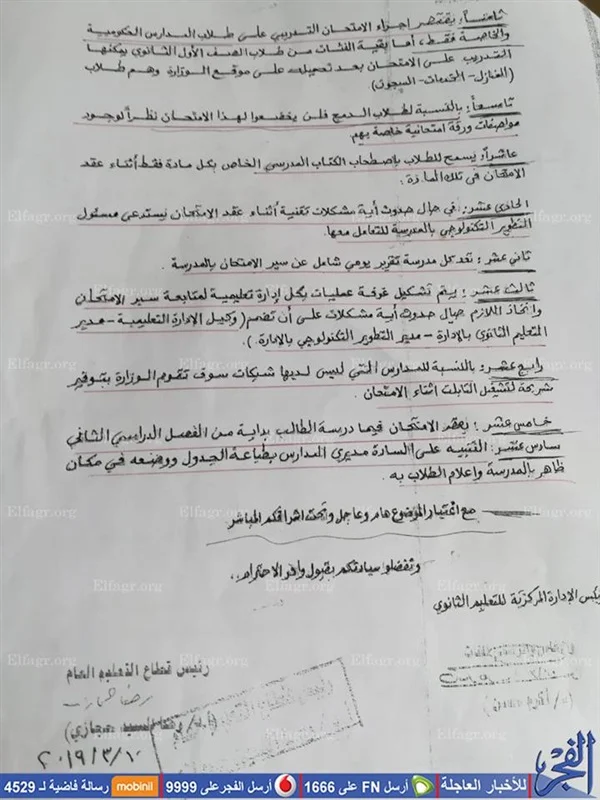 ثامناً: يقتصر إجراء الامتحان التدريبي على طلاب المدارس الحكومية
والخاصة فقط، أما بقية الفئات من طلاب الصف الأول الثانوي يمكنها
التدريب على الامتحان بعد تحميله على موقع الوزارة وهم طلاب
(المنازل - الخدمات - السجون).
تاسعاً: بالنسبة لطلاب الدمج فلن يخضعوا لهذا الامتحان نظراً لوجود
مواصفات ورقة امتحانية خاصة بهم
عاشراً: يسمح للطلاب بإصطحاب الكتاب المدرسي الخاص بكل مادة فقط أثناء عقد
الامتحان في تلك المادة.
الحادي عشر: في حال حدوث أية مشكلات تقنية أثناء عقد الامتحان يستدعى مسئول
التطوير التكنولوجي بالمدرسة للتعامل معها.
ثاني عشر: تعد كل مدرسة تقرير يومي شامل عن سير الامتحان بالمدرسة.
ثالث عشر: يتم تشكيل غرفة عمليات بكل إدارة تعليمية لمتابعة سير الامتحان
واتخاذ اللازم حيال حدوث أية مشكلات على أن تضم (وكيل الإدارة التعليمية - مدير
التعليم الثانوي بالإدارة - مدير التطوير التكنولوجي بالإدارة).
رابع عشر: بالنسبة للمدارس التي ليس لديها شبكات سوف تقوم الوزارة بتوفير
شريحة لتشغيل التابلت أثناء الامتحان.
خامس عشر: يعقد الامتحان فيما درسه الطالب بداية من الفصل الدراسي الثاني
سادس عشر: التنبيه على السادة مديري المدارس بطباعة الجدول ووضعه في مكان
ظاهر بالمدرسة وإعلام الطلاب به.
مع اعتبار الموضوع هام وعاجل وتحت اشرافكم المباشر
وتفضلوا سيادتكم بقبول وافر الاحترام،،
رئيس الإدارة المركزية للتعليم الثانوي
رئيس قطاع التعليم العام
(أ.د/ رضا السيد حجازي)
٢٠١٩/٣/١٠
Elfagr.org
الفجر
للأخبار العاجلة
أرسل FN على 1666
أرسل الفجر على 9999
mobinil
رسالة فاضية لـ 4529